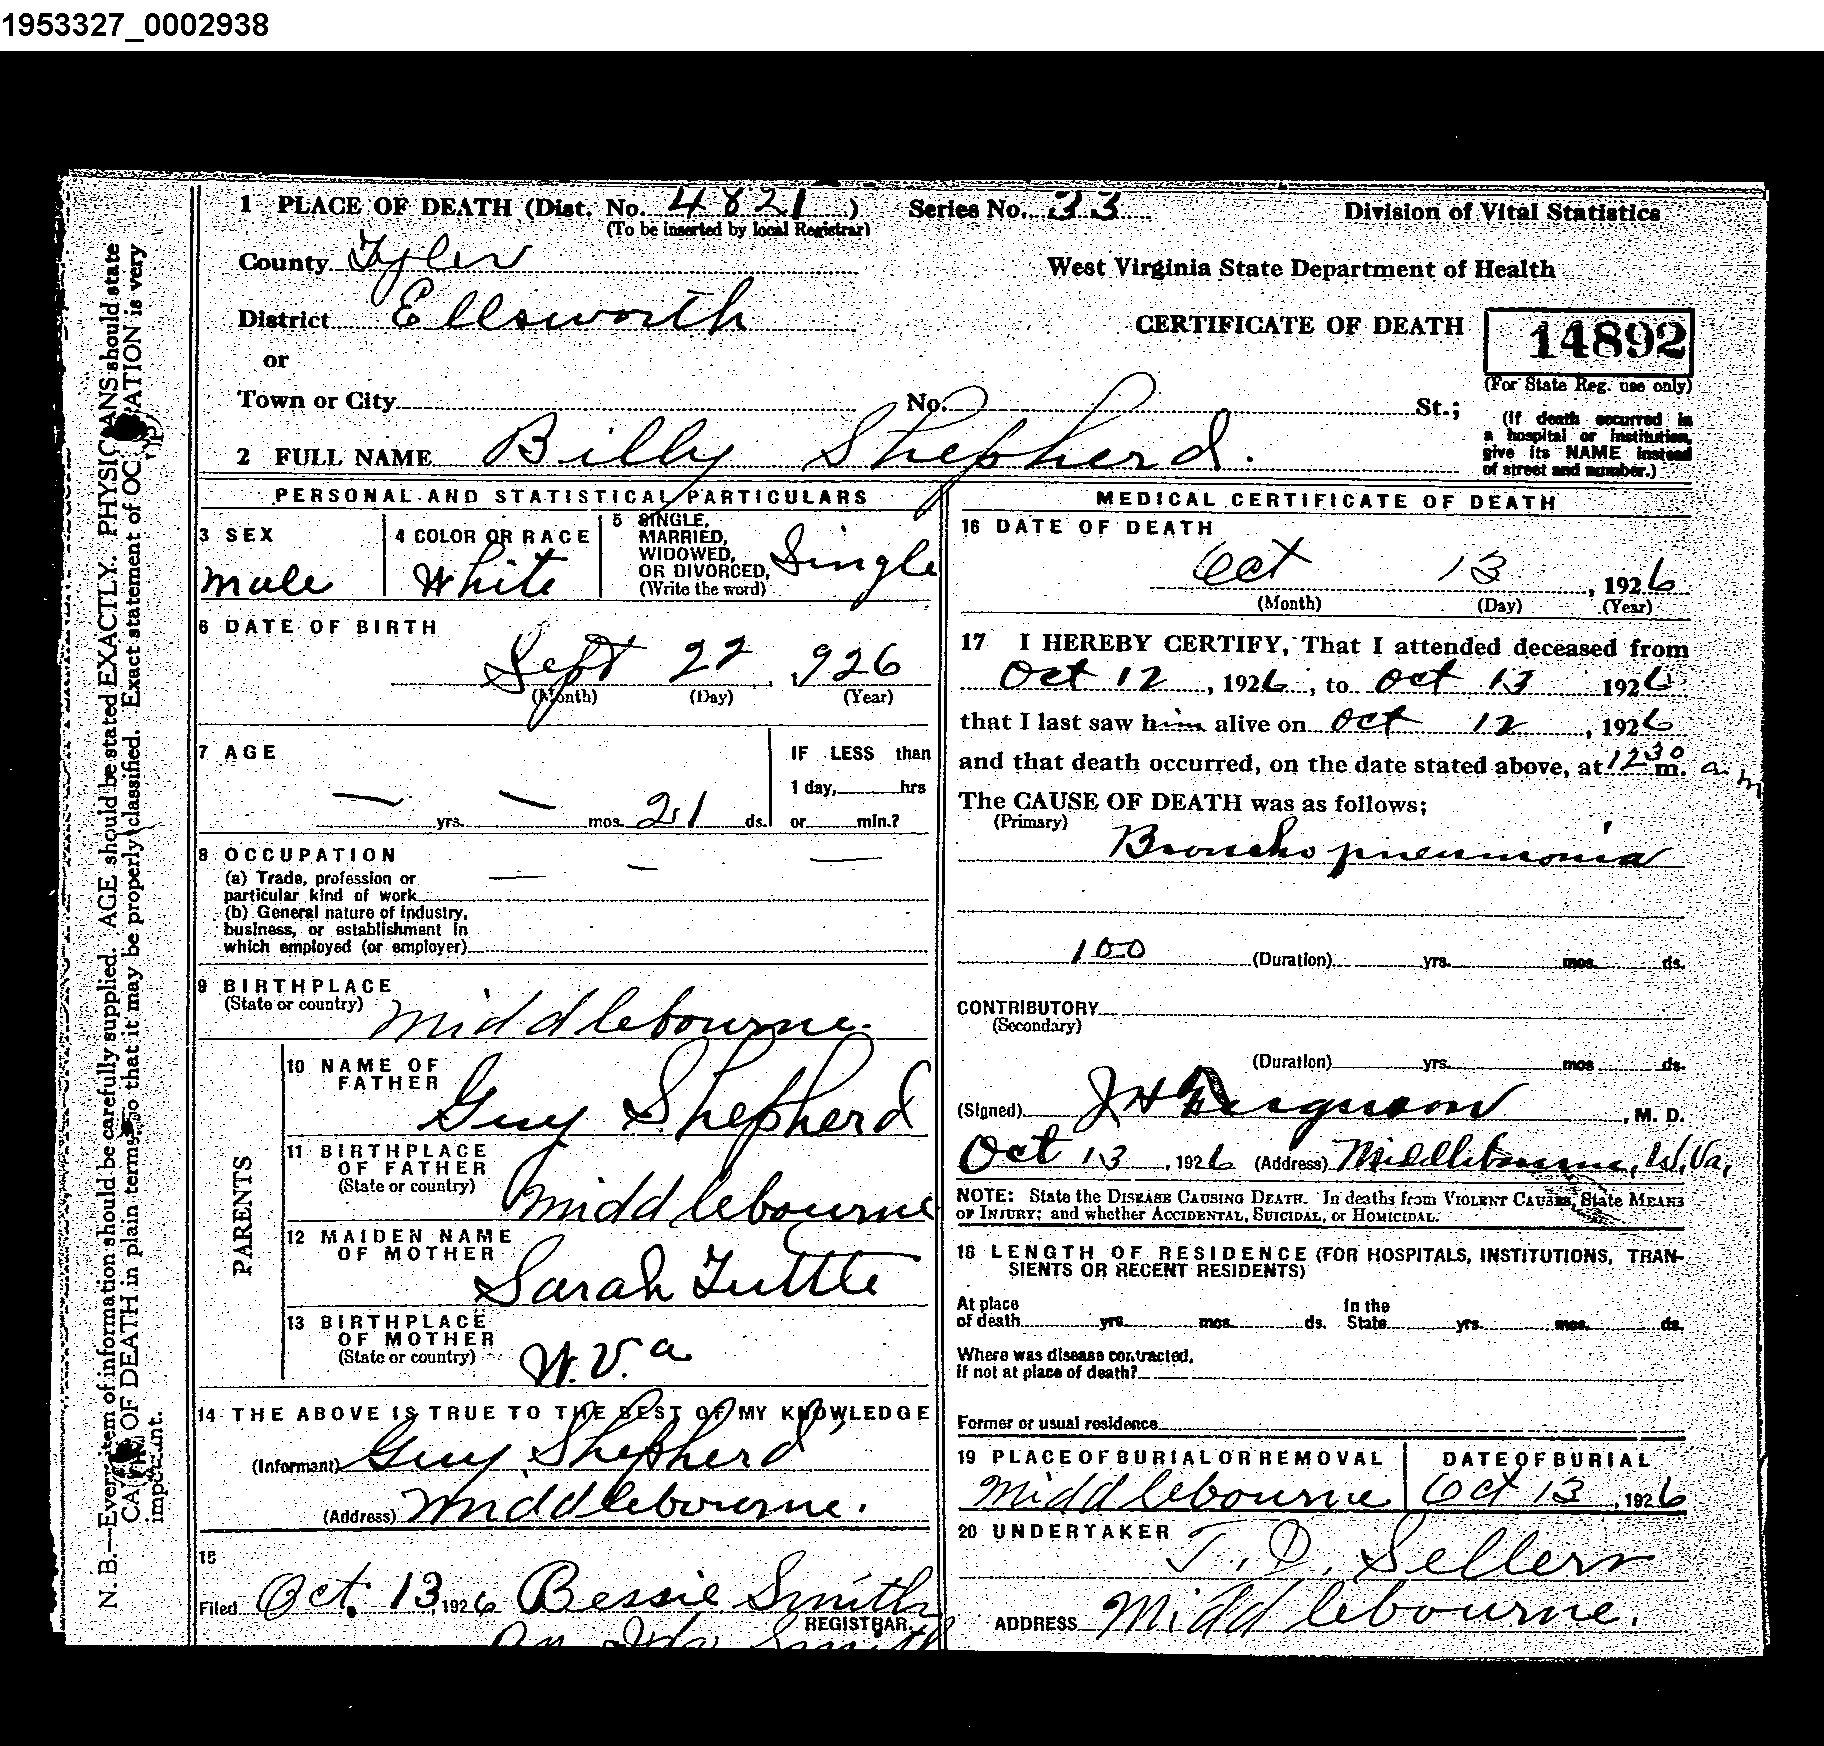 1953327_0002938
1 PLACE OF DEATH (Dist. No. 4821 ) Series No. 33 Division of Vital Statistics
(To be inserted by local Registrar)
County Tyler
West Virginia State Department of Health
District Ellsworth
CERTIFICATE OF DEATH 14892
or
(For State Reg. use only)
Town or City No. St.;
(If death occurred in
a hospital or institution,
give its NAME instead
of street and number.)
2 FULL NAME Billy Shepherd.
PERSONAL AND STATISTICAL PARTICULARS
3 SEX
male
4 COLOR OR RACE
White
5 SINGLE,
MARRIED,
WIDOWED,
OR DIVORCED,
(Write the word)
Single
6 DATE OF BIRTH
Sept 22 , 926
(Month) (Day) (Year)
7 AGE
— yrs. — mos. 21 ds.
IF LESS than
1 day, hrs
or min.?
8 OCCUPATION
(a) Trade, profession or
particular kind of work
— — —
(b) General nature of industry,
business, or establishment in
which employed (or employer)
9 BIRTHPLACE
(State or country) Middlebourne.
PARENTS
10 NAME OF
FATHER
Guy Shepherd
11 BIRTHPLACE
OF FATHER
(State or country)
Middlebourne
12 MAIDEN NAME
OF MOTHER
Sarah Tuttle
13 BIRTHPLACE
OF MOTHER
(State or country)
W.Va
14 THE ABOVE IS TRUE TO THE BEST OF MY KNOWLEDGE
(Informant) Guy Shepherd
(Address) Middlebourne.
15
Filed Oct. 13, 1926 Bessie Smith
REGISTRAR.
Smith
MEDICAL CERTIFICATE OF DEATH
16 DATE OF DEATH
Oct 13 , 1926
(Month) (Day) (Year)
17 I HEREBY CERTIFY, That I attended deceased from
Oct 12 , 1926 , to Oct 13 1926
that I last saw him alive on Oct 12 , 1926
and that death occurred, on the date stated above, at 1230 m. a.m
The CAUSE OF DEATH was as follows;
(Primary)
Broncho pneumonia
100 (Duration) yrs. mos. ds.
CONTRIBUTORY
(Secondary)
(Duration) yrs. mos ds.
(Signed) J H Ferguson , M. D.
Oct 13 , 1926 (Address) Middlebourne, W.Va,
NOTE: State the DISEASE CAUSING DEATH. In deaths from VIOLENT CAUSES, State MEANS
OF INJURY; and whether ACCIDENTAL, SUICIDAL, or HOMICIDAL.
18 LENGTH OF RESIDENCE (FOR HOSPITALS, INSTITUTIONS, TRAN-
SIENTS OR RECENT RESIDENTS)
At place
of death yrs. mos. ds.
In the
State yrs. mos. ds.
Where was disease contracted,
if not at place of death?
Former or usual residence
19 PLACE OF BURIAL OR REMOVAL
Middlebourne
DATE OF BURIAL
Oct 13 , 1926
20 UNDERTAKER
T. D. Sellers
ADDRESS Middlebourne.
N. B.—Every item of information should be carefully supplied. AGE should be stated EXACTLY. PHYSICIANS should state
OF DEATH in plain terms, so that it may be properly classified. Exact statement of OCCUPATION is very
important.